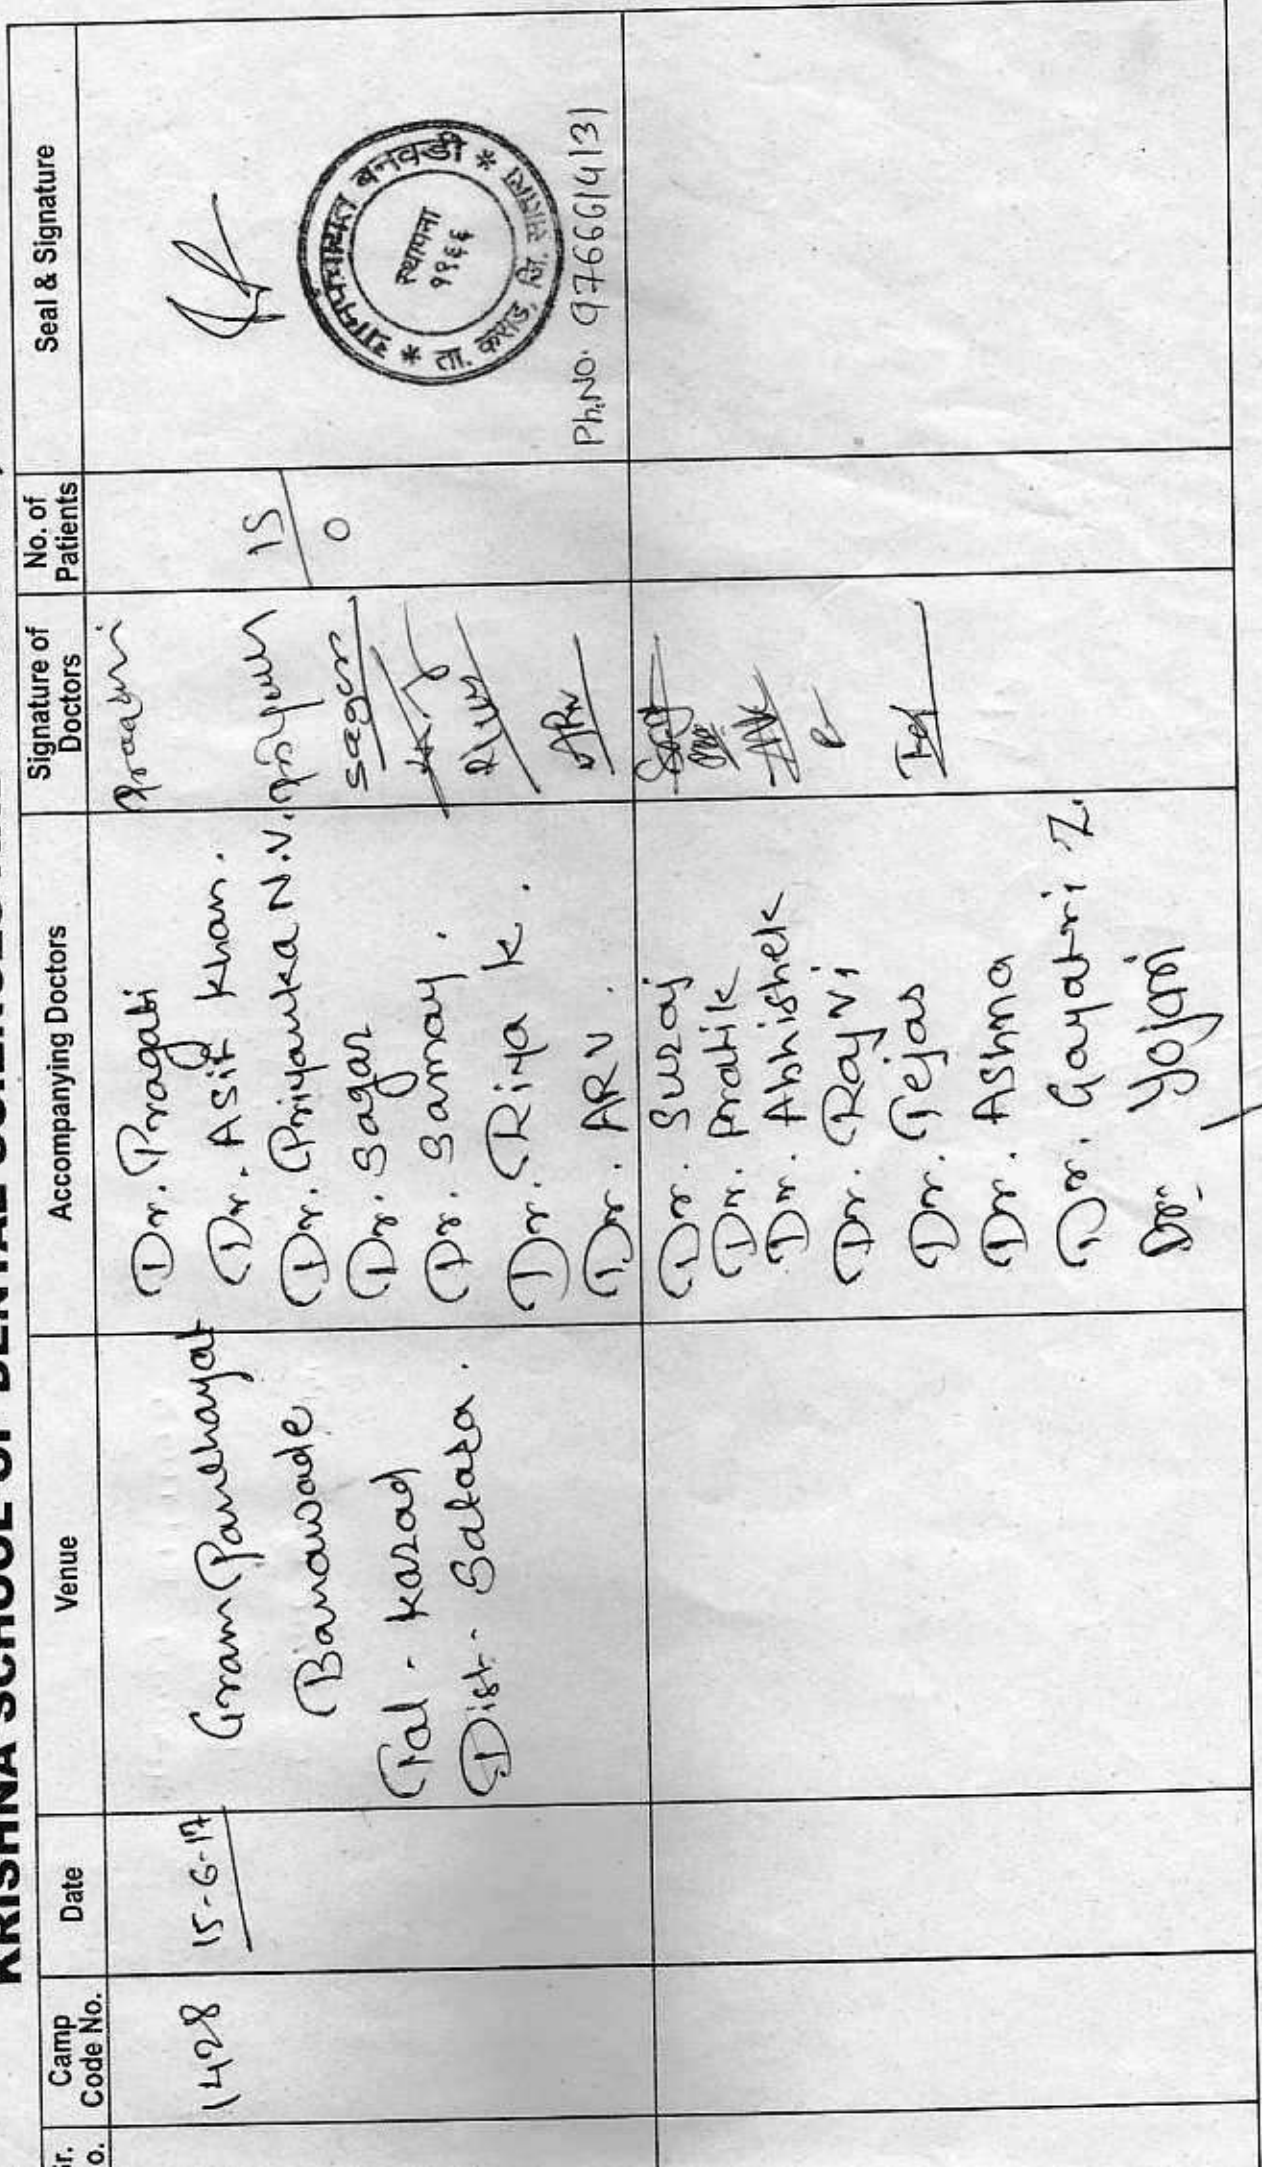 KRISHNA SCHOOL OF DENTAL SCIENCES
Camp
Code No.
Date
Venue
Accompanying Doctors
Signature of
Doctors
No. of
Patients
Seal & Signature
1428
15-6-17
Gram Panchayat
Banawade
Tal - Karad
Dist - Satara.
Dr. Pragati
Dr. Asif Khan.
Dr. Priyanka N.V.
Dr. Sagar
Dr. Samay.
Dr. Riya K.
Dr. ARV.
Sagar
15
0
ग्रामपंचायत बनवडी * ता. कराड, जि. सातारा *
स्थापना
१९६६
Ph.NO. 9766614131
Dr. Suraj
Dr. Pratik
Dr. Abhishek
Dr. Rajvi
Dr. Tejas
Dr. Ashma
Dr. Gayatri Z.
Dr. Yojani